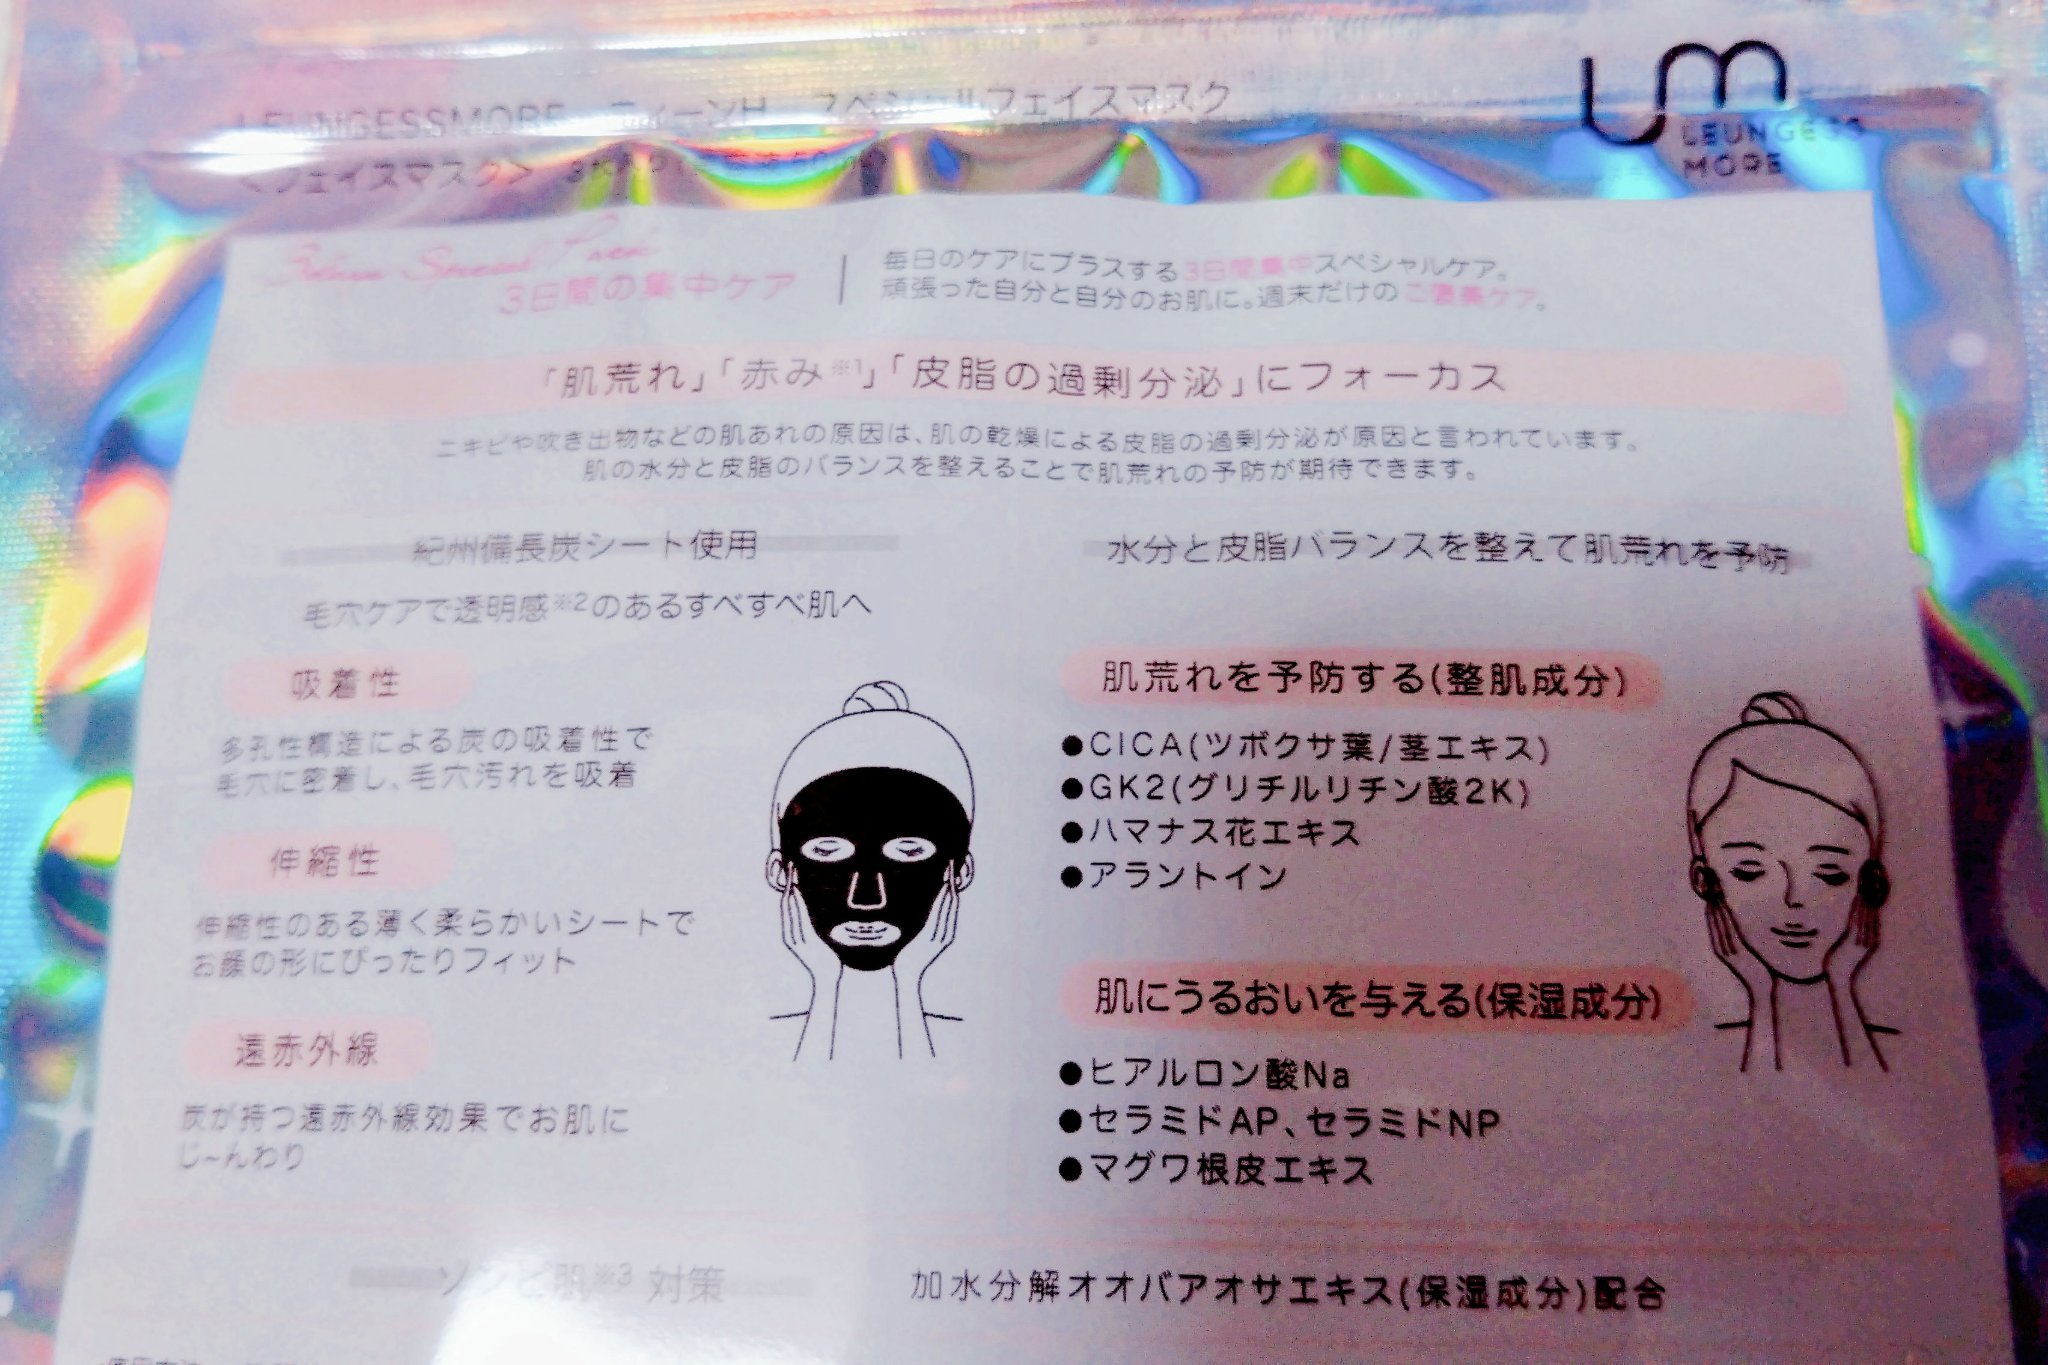 LEUNGESSMORE ティーンH スペシャルフェイスマスク
<フェイスマスク>
LEUNGESS
MORE
3days Special Pack
3日間の集中ケア
毎日のケアにプラスする3日間集中スペシャルケア。
頑張った自分と自分のお肌に。週末だけのご褒美ケア。
「肌荒れ」「赤み※1」「皮脂の過剰分泌」にフォーカス
ニキビや吹き出物などの肌あれの原因は、肌の乾燥による皮脂の過剰分泌が原因と言われています。
肌の水分と皮脂のバランスを整えることで肌荒れの予防が期待できます。
紀州備長炭シート使用
毛穴ケアで透明感※2のあるすべすべ肌へ
吸着性
多孔性構造による炭の吸着性で
毛穴に密着し、毛穴汚れを吸着
伸縮性
伸縮性のある薄く柔らかいシートで
お顔の形にぴったりフィット
遠赤外線
炭が持つ遠赤外線効果でお肌に
じ~んわり
水分と皮脂バランスを整えて肌荒れを予防
肌荒れを予防する(整肌成分)
●CICA(ツボクサ葉/茎エキス)
●GK2(グリチルリチン酸2K)
●ハマナス花エキス
●アラントイン
肌にうるおいを与える(保湿成分)
●ヒアルロン酸Na
●セラミドAP、セラミドNP
●マグワ根皮エキス
ゾンビ肌※3 対策
加水分解オオバアオサエキス(保湿成分)配合